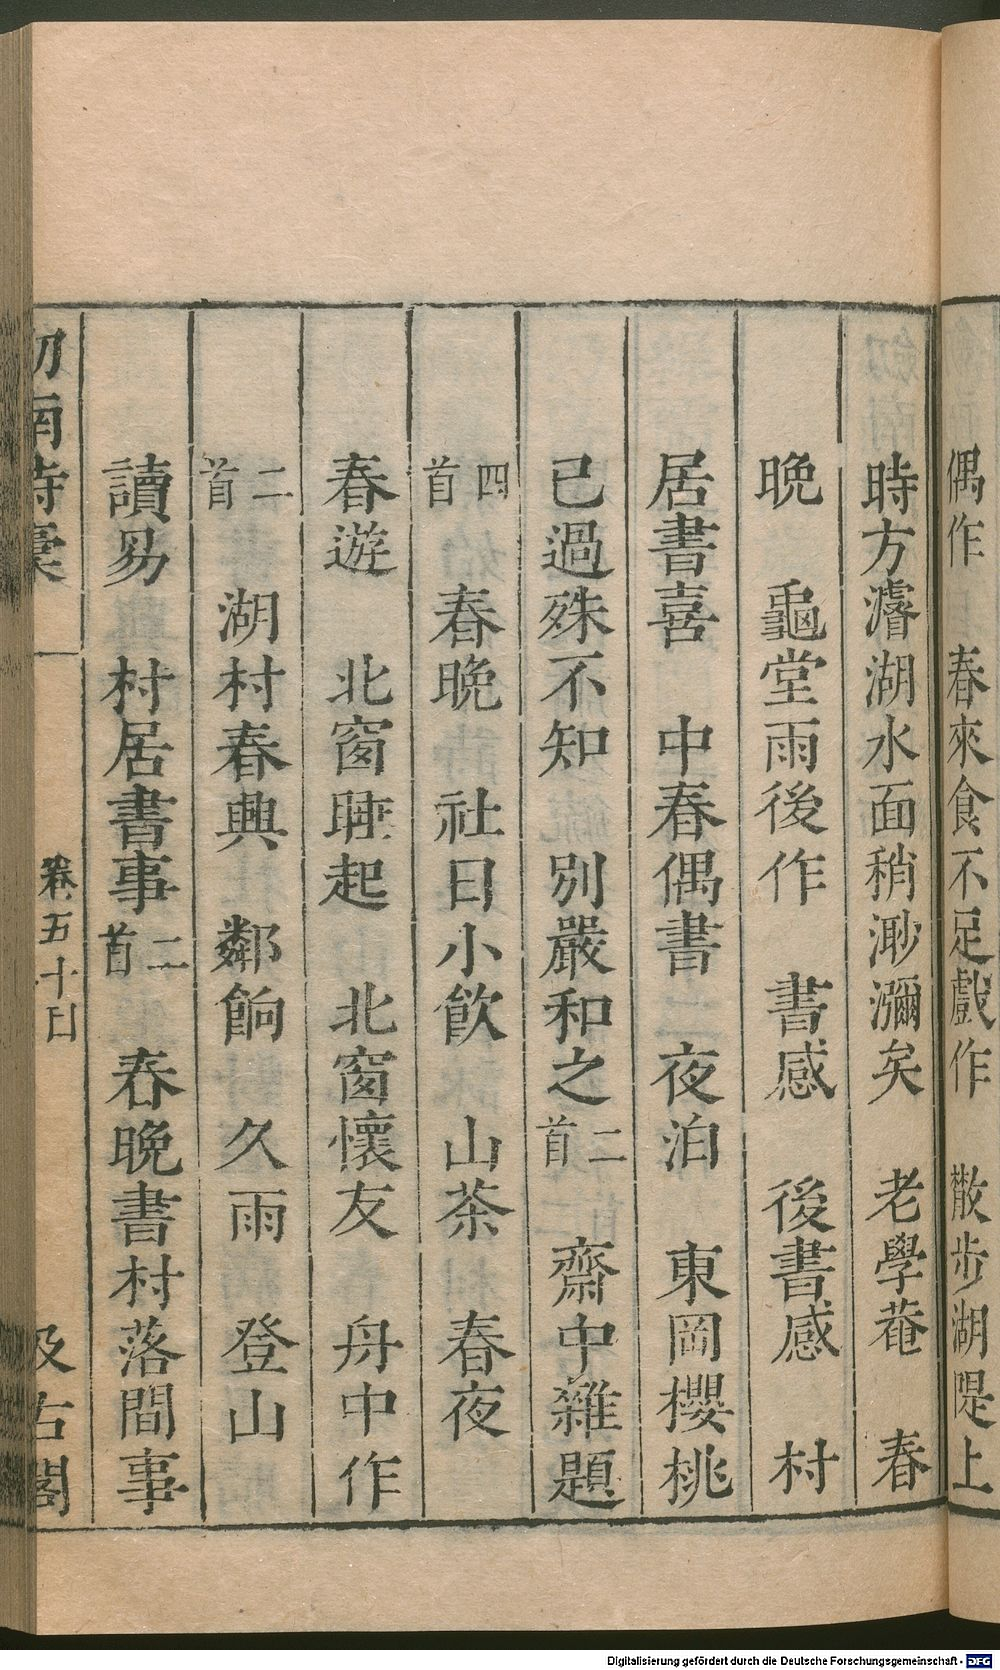 偶作　春來食不足戲作　散步湖隄上
時方濬湖水面稍渺瀰矣　老學菴　春
晚　龜堂雨後作　書感　後書感　村
居書喜　中春偶書　夜泊　東岡櫻桃
已過殊不知　別嚴和之二首　齋中雜題
四首　春晚　社日小飲　山茶　春夜
春遊　北窗睡起　北窗懷友　舟中作
二首　湖村春興　鄰餉　久雨　登山
讀易　村居書事二首　春晚書村落間事
劒南詩稾　卷五十目　汲古閣
Digitalisierung gefördert durch die Deutsche Forschungsgemeinschaft - DFG